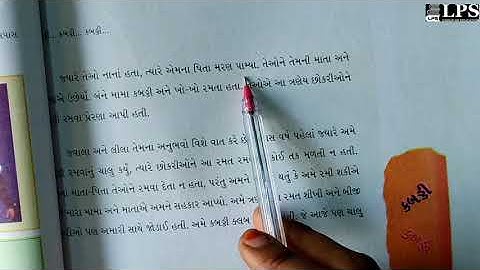 LPS
કબડ્ડી... કબડ્ડી...
જ્યારે તેઓ નાનાં હતા, ત્યારે એમના પિતા મરણ પામ્યા. તેઓને તેમની માતા અને
ઉછેર્યા. બંને મામા કબડ્ડી અને ખો-ખો રમતા હતા. આ ત્રણેય છોકરીઓને
રમવા પ્રેરણા આપી હતી.
જ્વાલા અને લીલા તેમના અનુભવો વિશે વાત કરે છે. વર્ષ પહેલાં જ્યારે અમે
રમવાનું ચાલુ કર્યું, ત્યારે છોકરીઓને આ રમત રમવાની કોઈ તક મળતી ન હતી.
માતા-પિતા તેઓને રમવા દેતા ન હતા, પરંતુ અમને હતું કે અમે રમી શકીએ
મારા મામા અને માતાએ અમને સહકાર આપ્યો. અમે રમત શીખી અને બીજી
છોકરીઓ પણ અમારી સાથે જોડાઈ હતી. અમે કબડ્ડી ક્લબ જે આજે પણ ચાલુ
કબડ્ડી